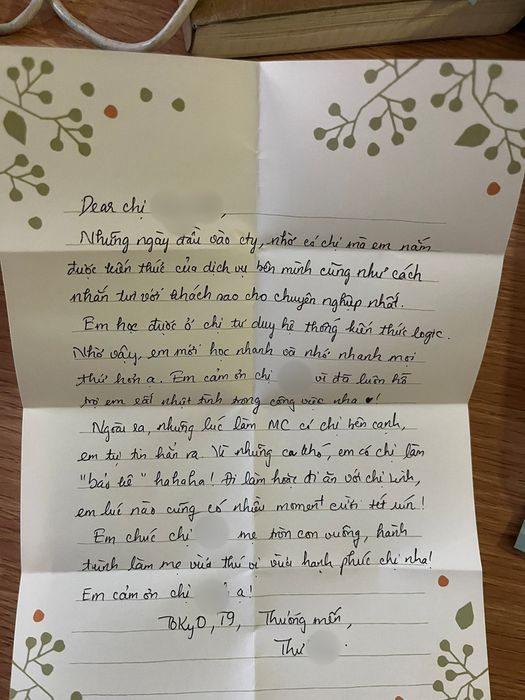 Dear chị ,
Những ngày đầu vào cty, nhờ có chị mà em nắm
được kiến thức của dịch vụ bên mình cũng như cách
nhắn tin với khách sao cho chuyên nghiệp nhất.
Em học được ở chị tư duy hệ thống kiến thức logic.
Nhờ vậy, em mới học nhanh và nhớ nhanh mọi
thứ hơn ạ. Em cảm ơn chị vì đã luôn hỗ
trợ em rất nhiệt tình trong công việc nha ♥!
Ngoài ra, những lúc làm MC có chị bên cạnh,
em tự tin hẳn ra. Vì những ca khó, em có chị làm
"bảo kê" hahaha! Đi làm hoặc đi ăn với chị Linh,
em lúc nào cũng có nhiều moment cười tét rún!
Em chúc chị mẹ tròn con vuông, hành
trình làm mẹ vừa thú vị vừa hạnh phúc chị nha!
Em cảm ơn chị ạ!
TOKYO, T9, Thương mến,
Thư .